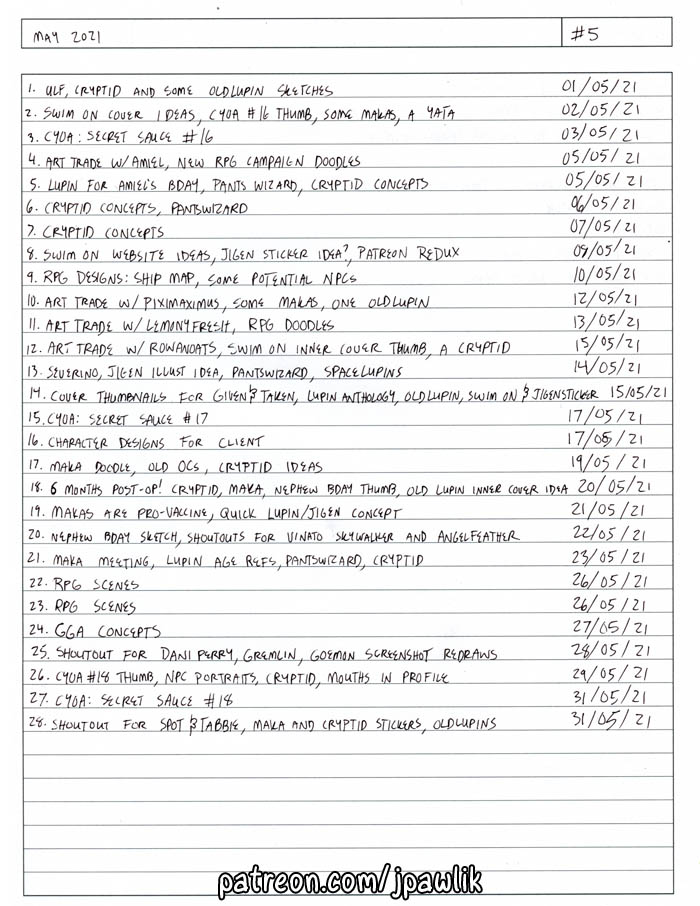 MAY 2021 #5
1. ULF, CRYPTID AND SOME OLDLUPIN SKETCHES 01/05/21
2. SWIM ON COVER IDEAS, CYOA #16 THUMB, SOME MAKAS, A YATA 02/05/21
3. CYOA: SECRET SAUCE #16 03/05/21
4. ART TRADE W/ AMIEL, NEW RPG CAMPAIGN DOODLES 05/05/21
5. LUPIN FOR AMIEL'S BDAY, PANTS WIZARD, CRYPTID CONCEPTS 05/05/21
6. CRYPTID CONCEPTS, PANTSWIZARD 06/05/21
7. CRYPTID CONCEPTS 07/05/21
8. SWIM ON WEBSITE IDEAS, JIGEN STICKER IDEA?, PATREON REDUX 09/05/21
9. RPG DESIGNS: SHIP MAP, SOME POTENTIAL NPCS 10/05/21
10. ART TRADE W/ PIXIMAXIMUS, SOME MAKAS, ONE OLDLUPIN 12/05/21
11. ART TRADE W/ LEMONYFRESH, RPG DOODLES 13/05/21
12. ART TRADE W/ ROWANOATS, SWIM ON INNER COVER THUMB, A CRYPTID 15/05/21
13. SEVERINO, JIGEN ILLUST IDEA, PANTSWIZARD, SPACELUPINS 14/05/21
14. COVER THUMBNAILS FOR GIVEN & TAKEN, LUPIN ANTHOLOGY, OLDLUPIN, SWIM ON & JIGENSTICKER 15/05/21
15. CYOA: SECRET SAUCE #17 17/05/21
16. CHARACTER DESIGNS FOR CLIENT 17/05/21
17. MAKA DOODLE, OLD OCS, CRYPTID IDEAS 19/05/21
18. 6 MONTHS POST-OP! CRYPTID, MAKA, NEPHEW BDAY THUMB, OLD LUPIN INNER COVER IDEA 20/05/21
19. MAKAS ARE PRO-VACCINE, QUICK LUPIN/JIGEN CONCEPT 21/05/21
20. NEPHEW BDAY SKETCH, SHOUTOUTS FOR VINATO SKYWALKER AND ANGELFEATHER 22/05/21
21. MAKA MEETING, LUPIN AGE REFS, PANTSWIZARD, CRYPTID 23/05/21
22. RPG SCENES 26/05/21
23. RPG SCENES 26/05/21
24. GGA CONCEPTS 27/05/21
25. SHOUTOUT FOR DANI PERRY, GREMLIN, GOEMON SCREENSHOT REDRAWS 28/05/21
26. CYOA #18 THUMB, NPC PORTRAITS, CRYPTID, MOUTHS IN PROFILE 29/05/21
27. CYOA: SECRET SAUCE #18 31/05/21
28. SHOUTOUT FOR SPOT & TABBIE, MAKA AND CRYPTID STICKERS, OLDLUPINS 31/05/21
patreon.com/jpawlik